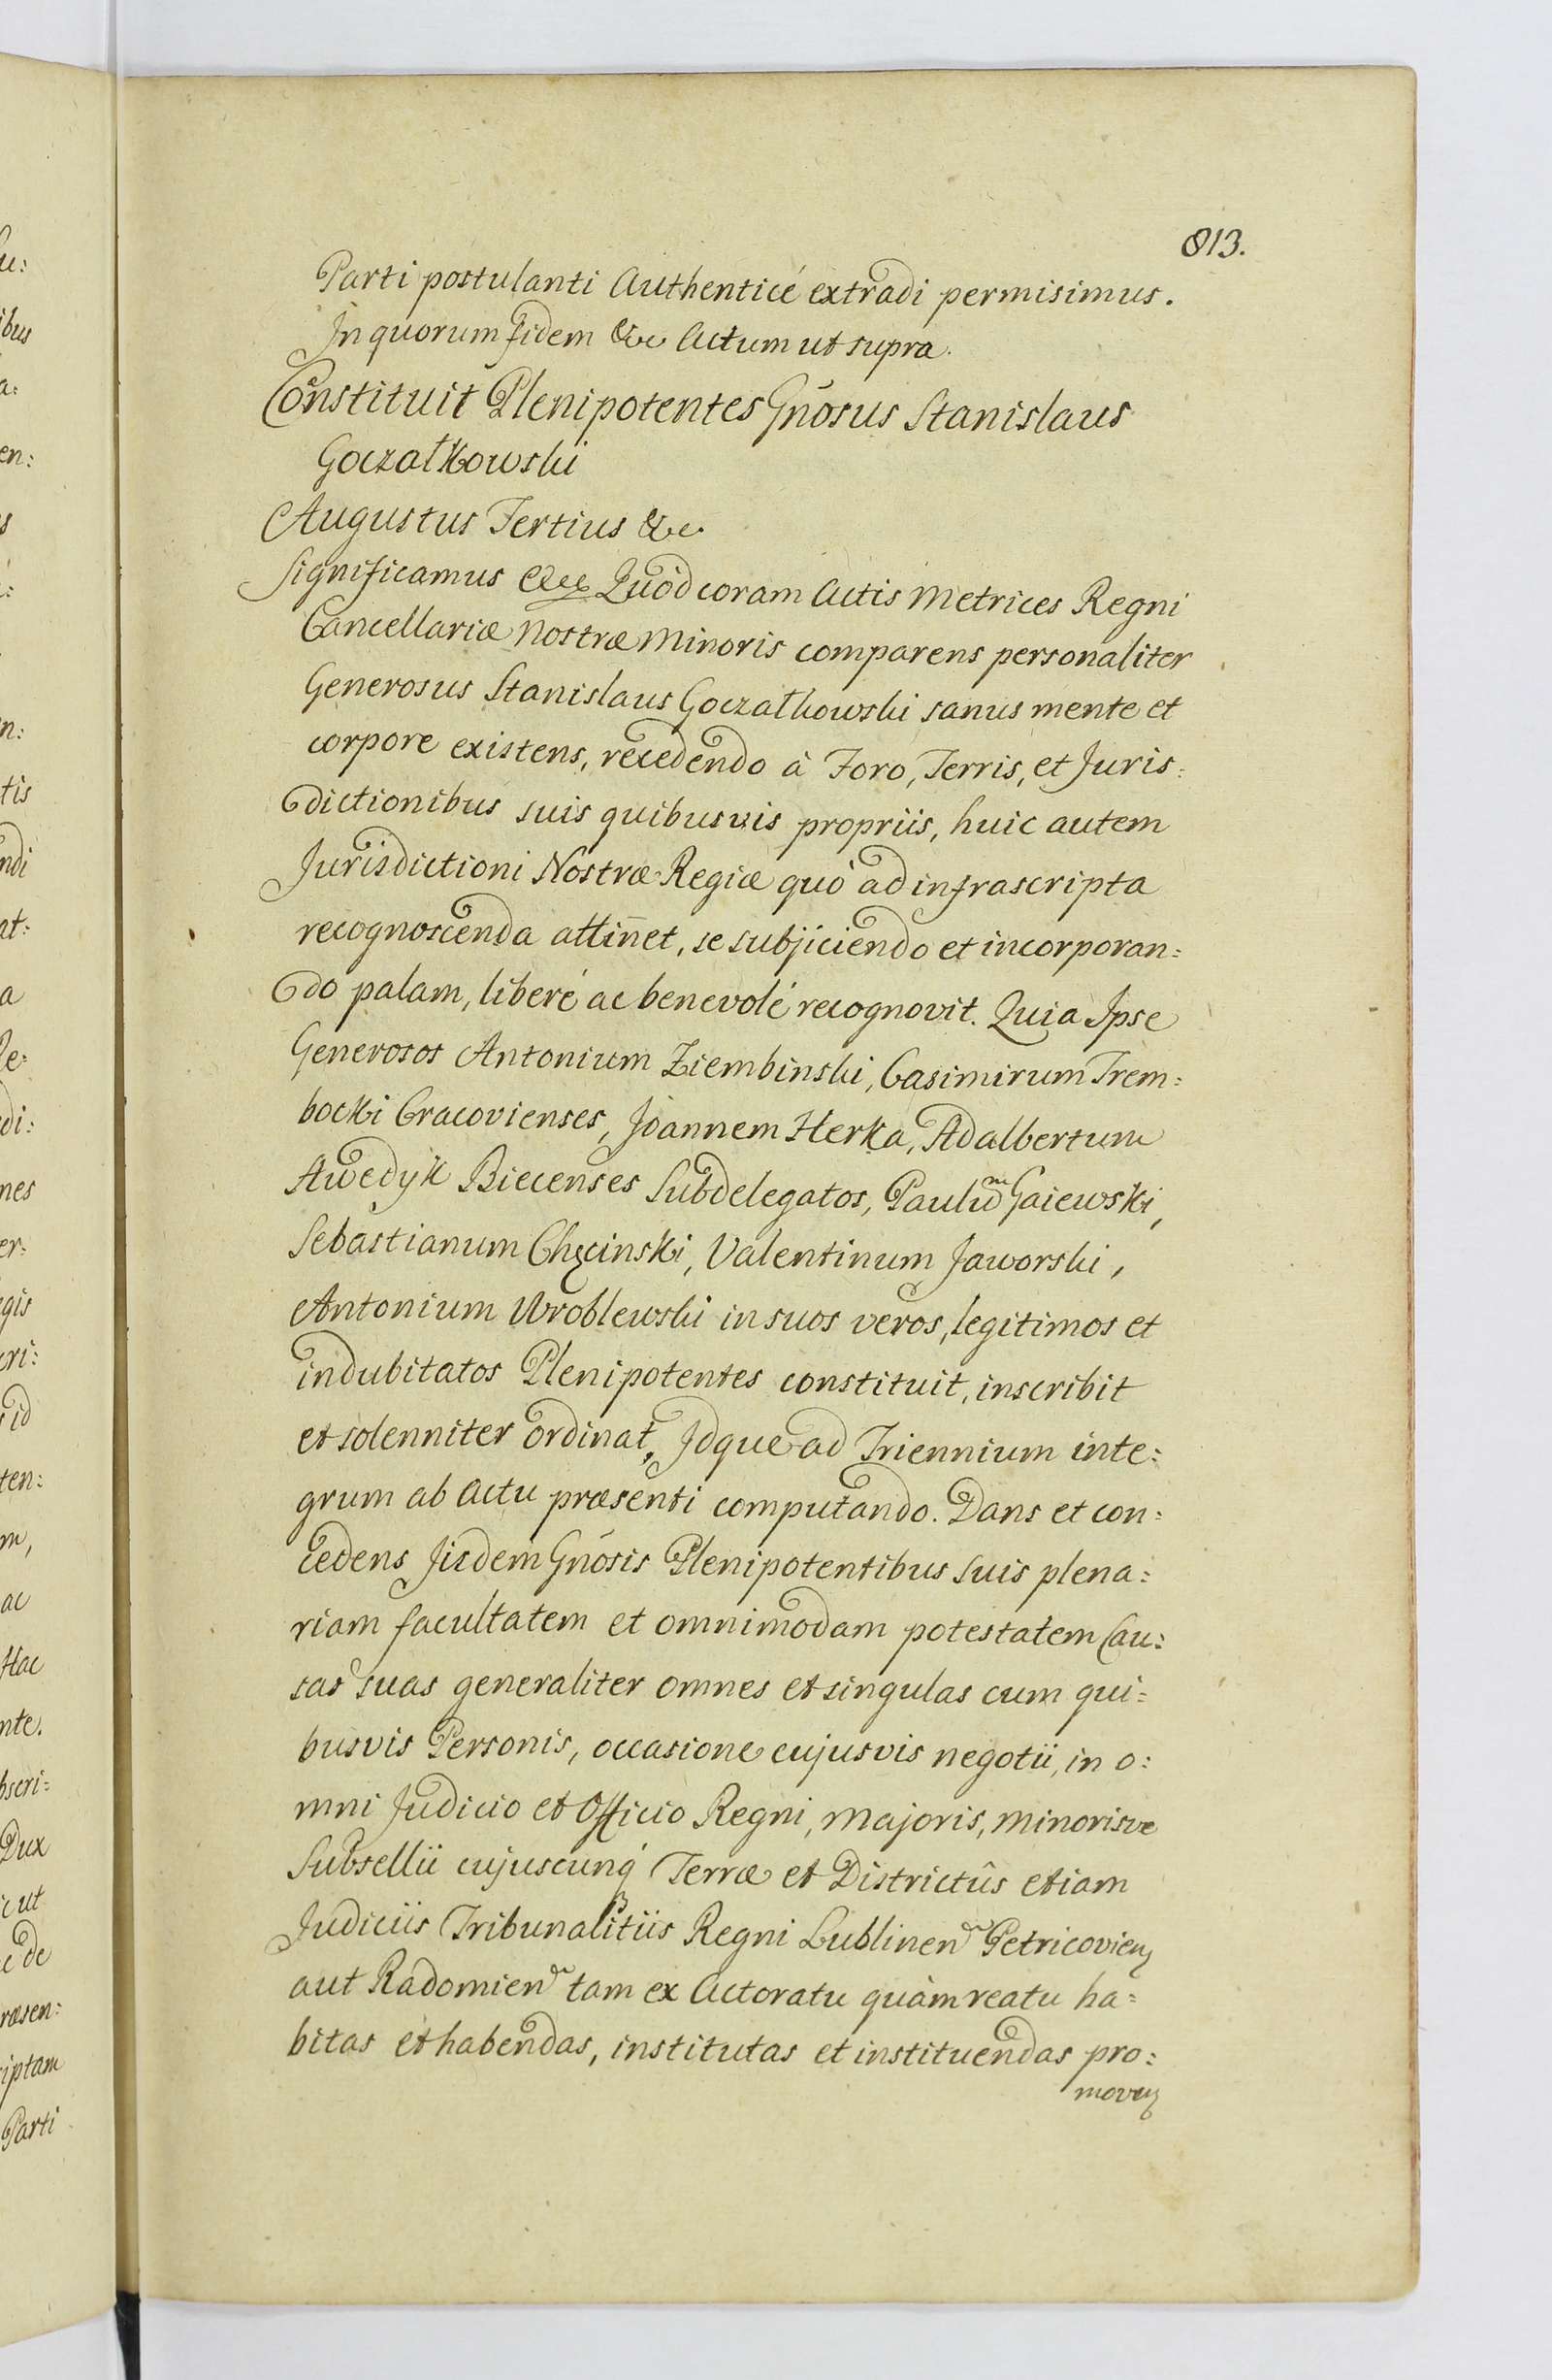 813.
Parti postulanti Authenticé extradi permisimus.
In quorum fidem &c Actum ut supra.
Constituit Plenipotentes Gnosus Stanislaus
Goczałkowski
Augustus Tertius &c
Significamus &c Quòd coram Actis Metrices Regni
Cancellariæ Nostræ Minoris comparens personaliter
Generosus Stanislaus Goczałkowski sanus mente et
corpore existens, recedendo à Foro, Terris, et Juris:
dictionibus suis quibusvis propriis, huic autem
Jurisdictioni Nostræ Regiæ quò ad infrascripta
recognoscenda attinnet, se subjiciendo et incorporan:
do palam, liberé ac benevolé recognovit. Quia Ipse
Generosos Antonium Ziembinski, Casimirum Trem:
bocki Cracovienses, Joannem Herka, Adalbertum
Awedyk Biecenses Subdelegatos, Paulum Gaiewski,
Sebastianum Chęcinski, Valentinum Jaworski,
Antonium Wroblewski in suos veros, legitimos et
indubitatos Plenipotentes constituit, inscribit
et solenniter ordinat, Idque ad Triennium inte:
grum ab Actu præsenti computando. Dans et con:
cedens Iisdem Gnosis Plenipotentibus suis plena:
riam facultatem et omnimodam potestatem Cau:
sas suas generaliter omnes et singulas cum qui:
busvis Personis, occasione cujusvis negotii, in o:
mni Judicio et Officio Regni, Majoris, Minorisve
Subsellii cujuscunq́ Terræ et Districtûs etiam
Judiciis Tribunalitiis Regni Lublinen Petricovien
aut Radomien tam ex Actoratu quàm reatu ha:
bitas et habendas, institutas et instituendas pro:
moven